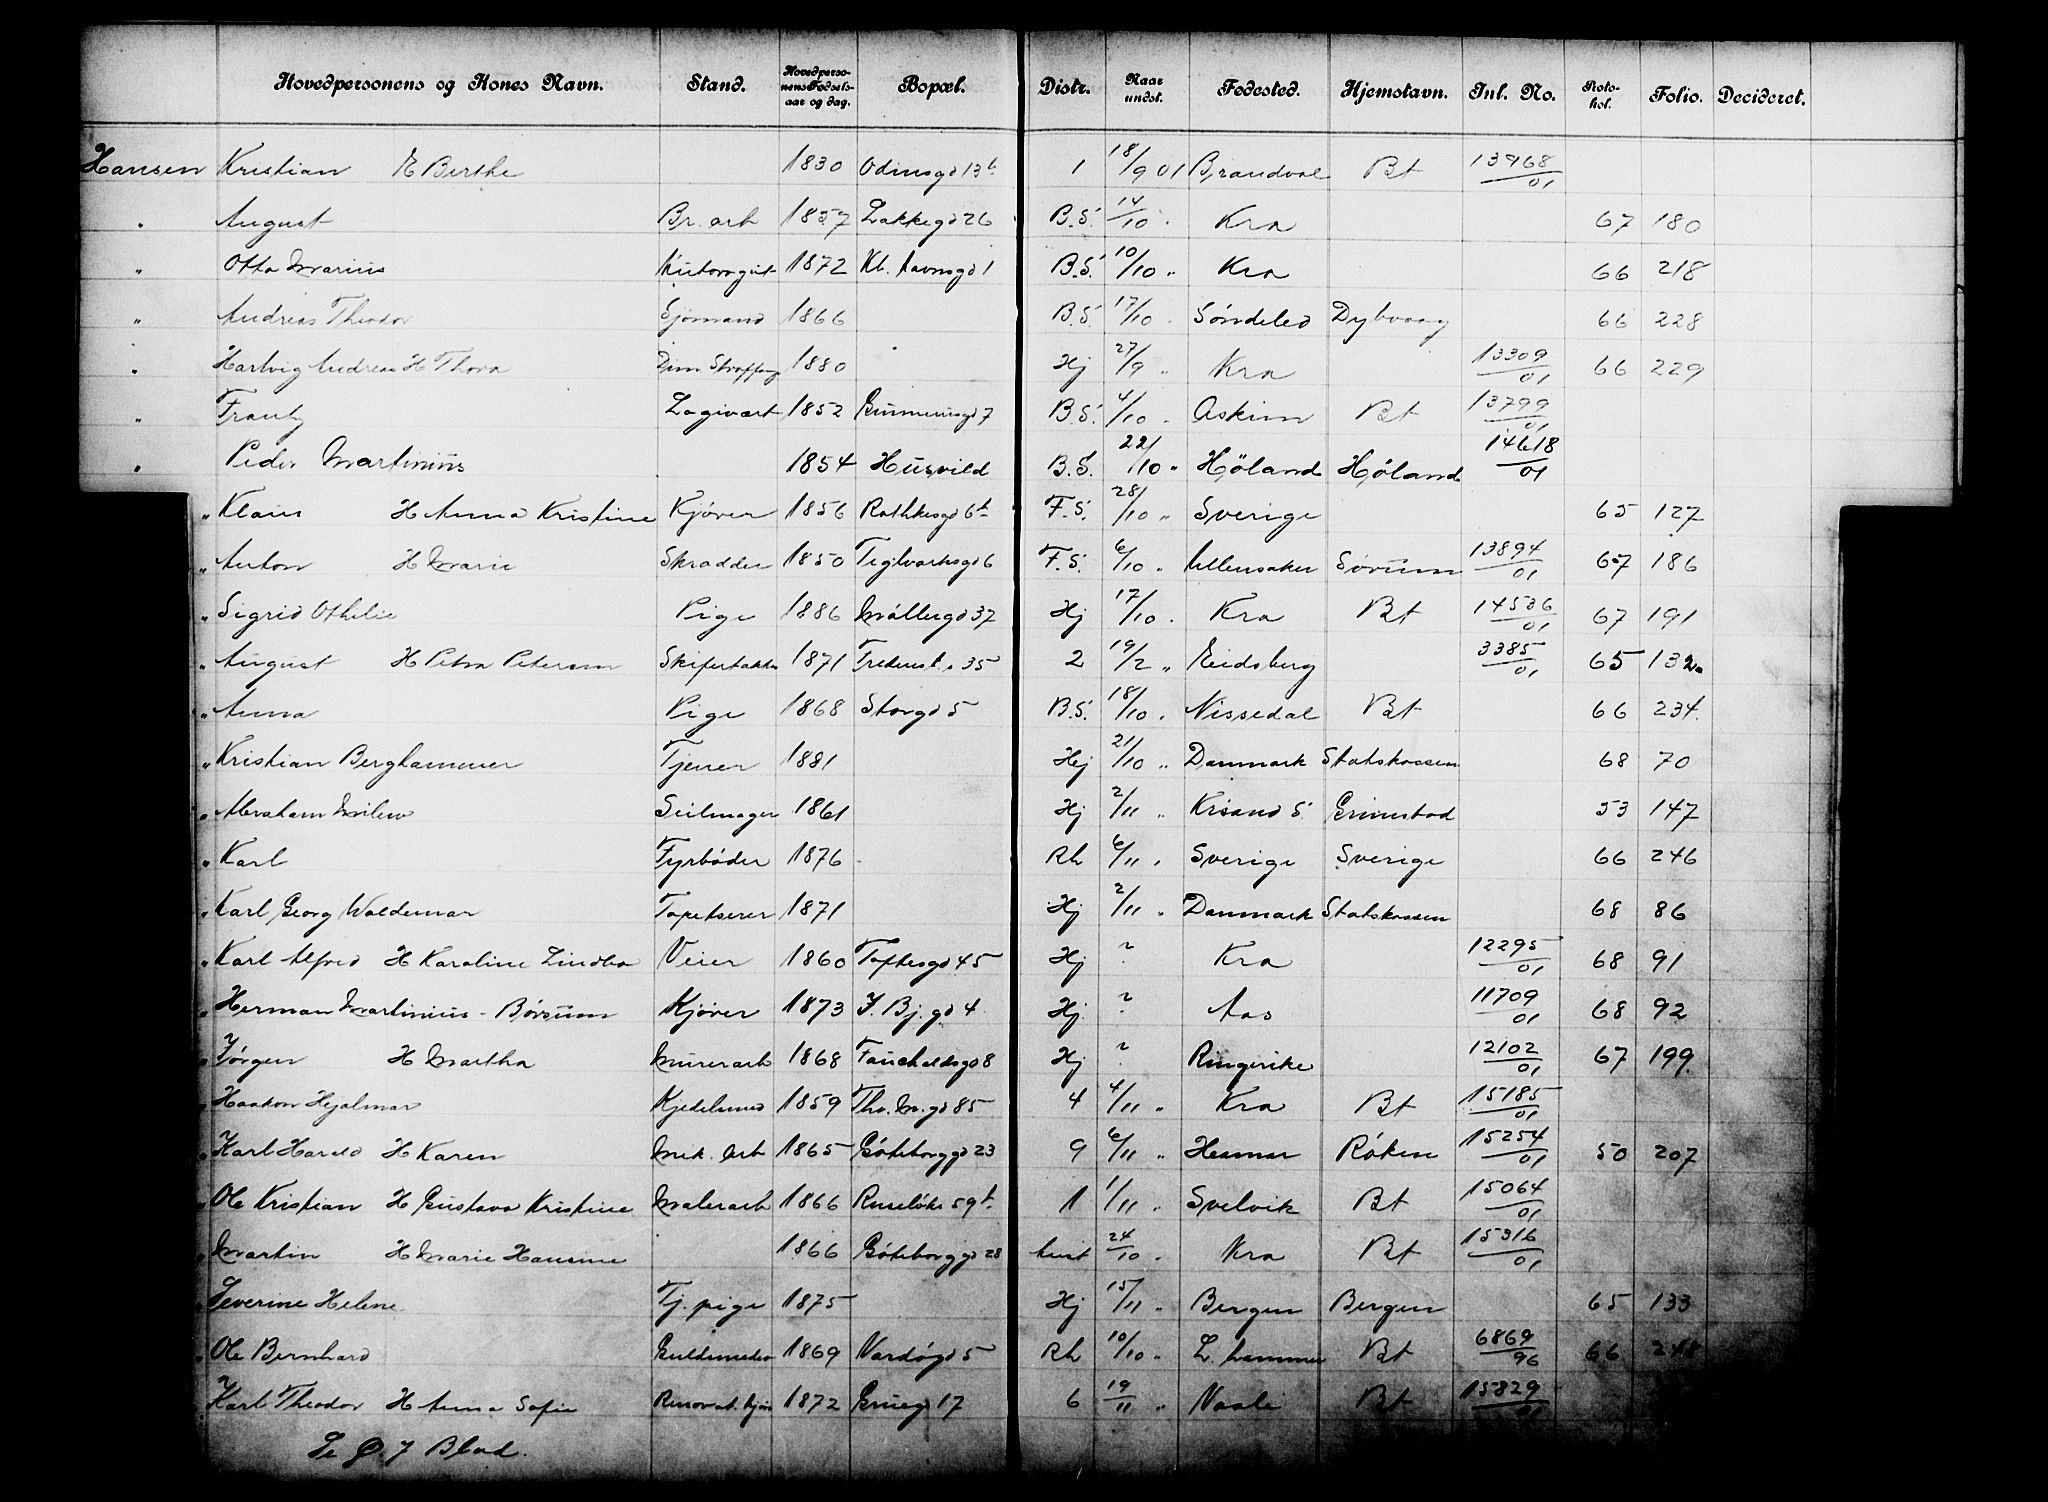 Hovedpersonens og Kones Navn. Stand. Hovedperso-nens Fødsels-aar og dag. Bopæl. Distr. Naar undst. Fødested. Hjemstavn. Inl. No. Proto-kol. Folio. Decideret.
Hansen Kristian E Berthe 1830 Odinsgd 13b 1 18/9 01 Brandval Bt 13968/01
" August Br. arb 1857 Lakkegd 26 B.S. 14/10 " Kra 67 180
" Otto Marius 1872 Kl. havnsgd 1 B.S. 10/10 " Kra 66 218
" Andreas Theodor Sjømand 1866 B.S. 17/10 " Søndeled Dybvaag 66 228
" Hartvig Andreas H Thora Dim. Straffang 1880 " Hj 27/9 " Kra 13309/01 66 229
" Frantz Logivært 1852 Gunnerusgd 7 B.S. 4/10 " Askim Bt 13799/01
" Peder Martinius 1854 Husvild B.S. 22/10 " Høland Høland 14618/01
" Klaus H Anna Kristine Kjører 1856 Rathkesgd 6b F.S. 28/10 " Sverige 65 127
" Anton H Marie Skrædder 1850 Teglværksgd 6 F.S. 6/10 " Ullensaker Sørum 13894/01 67 186
" Sigrid Othilie Pige 1886 Møllergd 37 Hj 17/10 " Kra Bt 14536/01 67 191
" August H Petra Petersen Skifertække 1871 Frederust. " 35 2 19/2 " Eidsberg 3385/01 65 132
" Anna Pige 1868 Storgd 5 B.S. 18/10 " Nissedal Bt 66 234
" Kristian Berghammer Tjener 1881 Hj 21/10 " Danmark Statskassen 68 70
" Abraham Milew Seilmager 1861 Hj 2/11 " Krisand S. Grimstad 53 147
" Karl Fyrbøder 1876 Rh 6/11 " Sverige Sverige 66 246
" Karl Georg Waldemar Tapetserer 1871 Hj 2/11 " Danmark Statskassen 68 86
" Karl Alfred H Karoline Lindbo Veier 1860 Toftesgd 45 Hj ? Kra 12295/01 68 91
" Herman Martinius - Børsum Kjører 1873 J. Bj. gd 4 Hj ? Aas 11709/01 68 92
" Jørgen H Martha Murerarb 1868 Fauchaldsgd 8 Hj ? Ringerike 12102/01 67 199
" Haakon Hjalmar Kjedelsmed 1859 Thv. M. gd 85 4 4/11 " Kra Bt 15185/01
" Karl Harald H Karen Mek. Arb 1865 Gøteborggd 23 9 6/11 " Hamar Røken 15254/01 50 207
" Ole Kristian H Gustava Kristine Malerarb 1866 Ruseløkv 59b 1 1/11 " Svelvik Bt 15064/01
" Martin H Marie Hansine 1866 Gøteborggd 28 24/10 " Kra Bt 15316/01
" Severine Helene Tj. pige 1875 Hj 15/11 " Bergen Bergen 65 133
" Ole Bernhard Guldsmedsv 1869 Vardøgd 5 Rh 10/10 " L. hammer Bt 6869/96 66 248
" Karl Theodor H Anna Sofie Renovat. kjør 1872 Gruegd 17 6 19/11 " Vaale Bt 15829/01
Se P. 7 Blad.